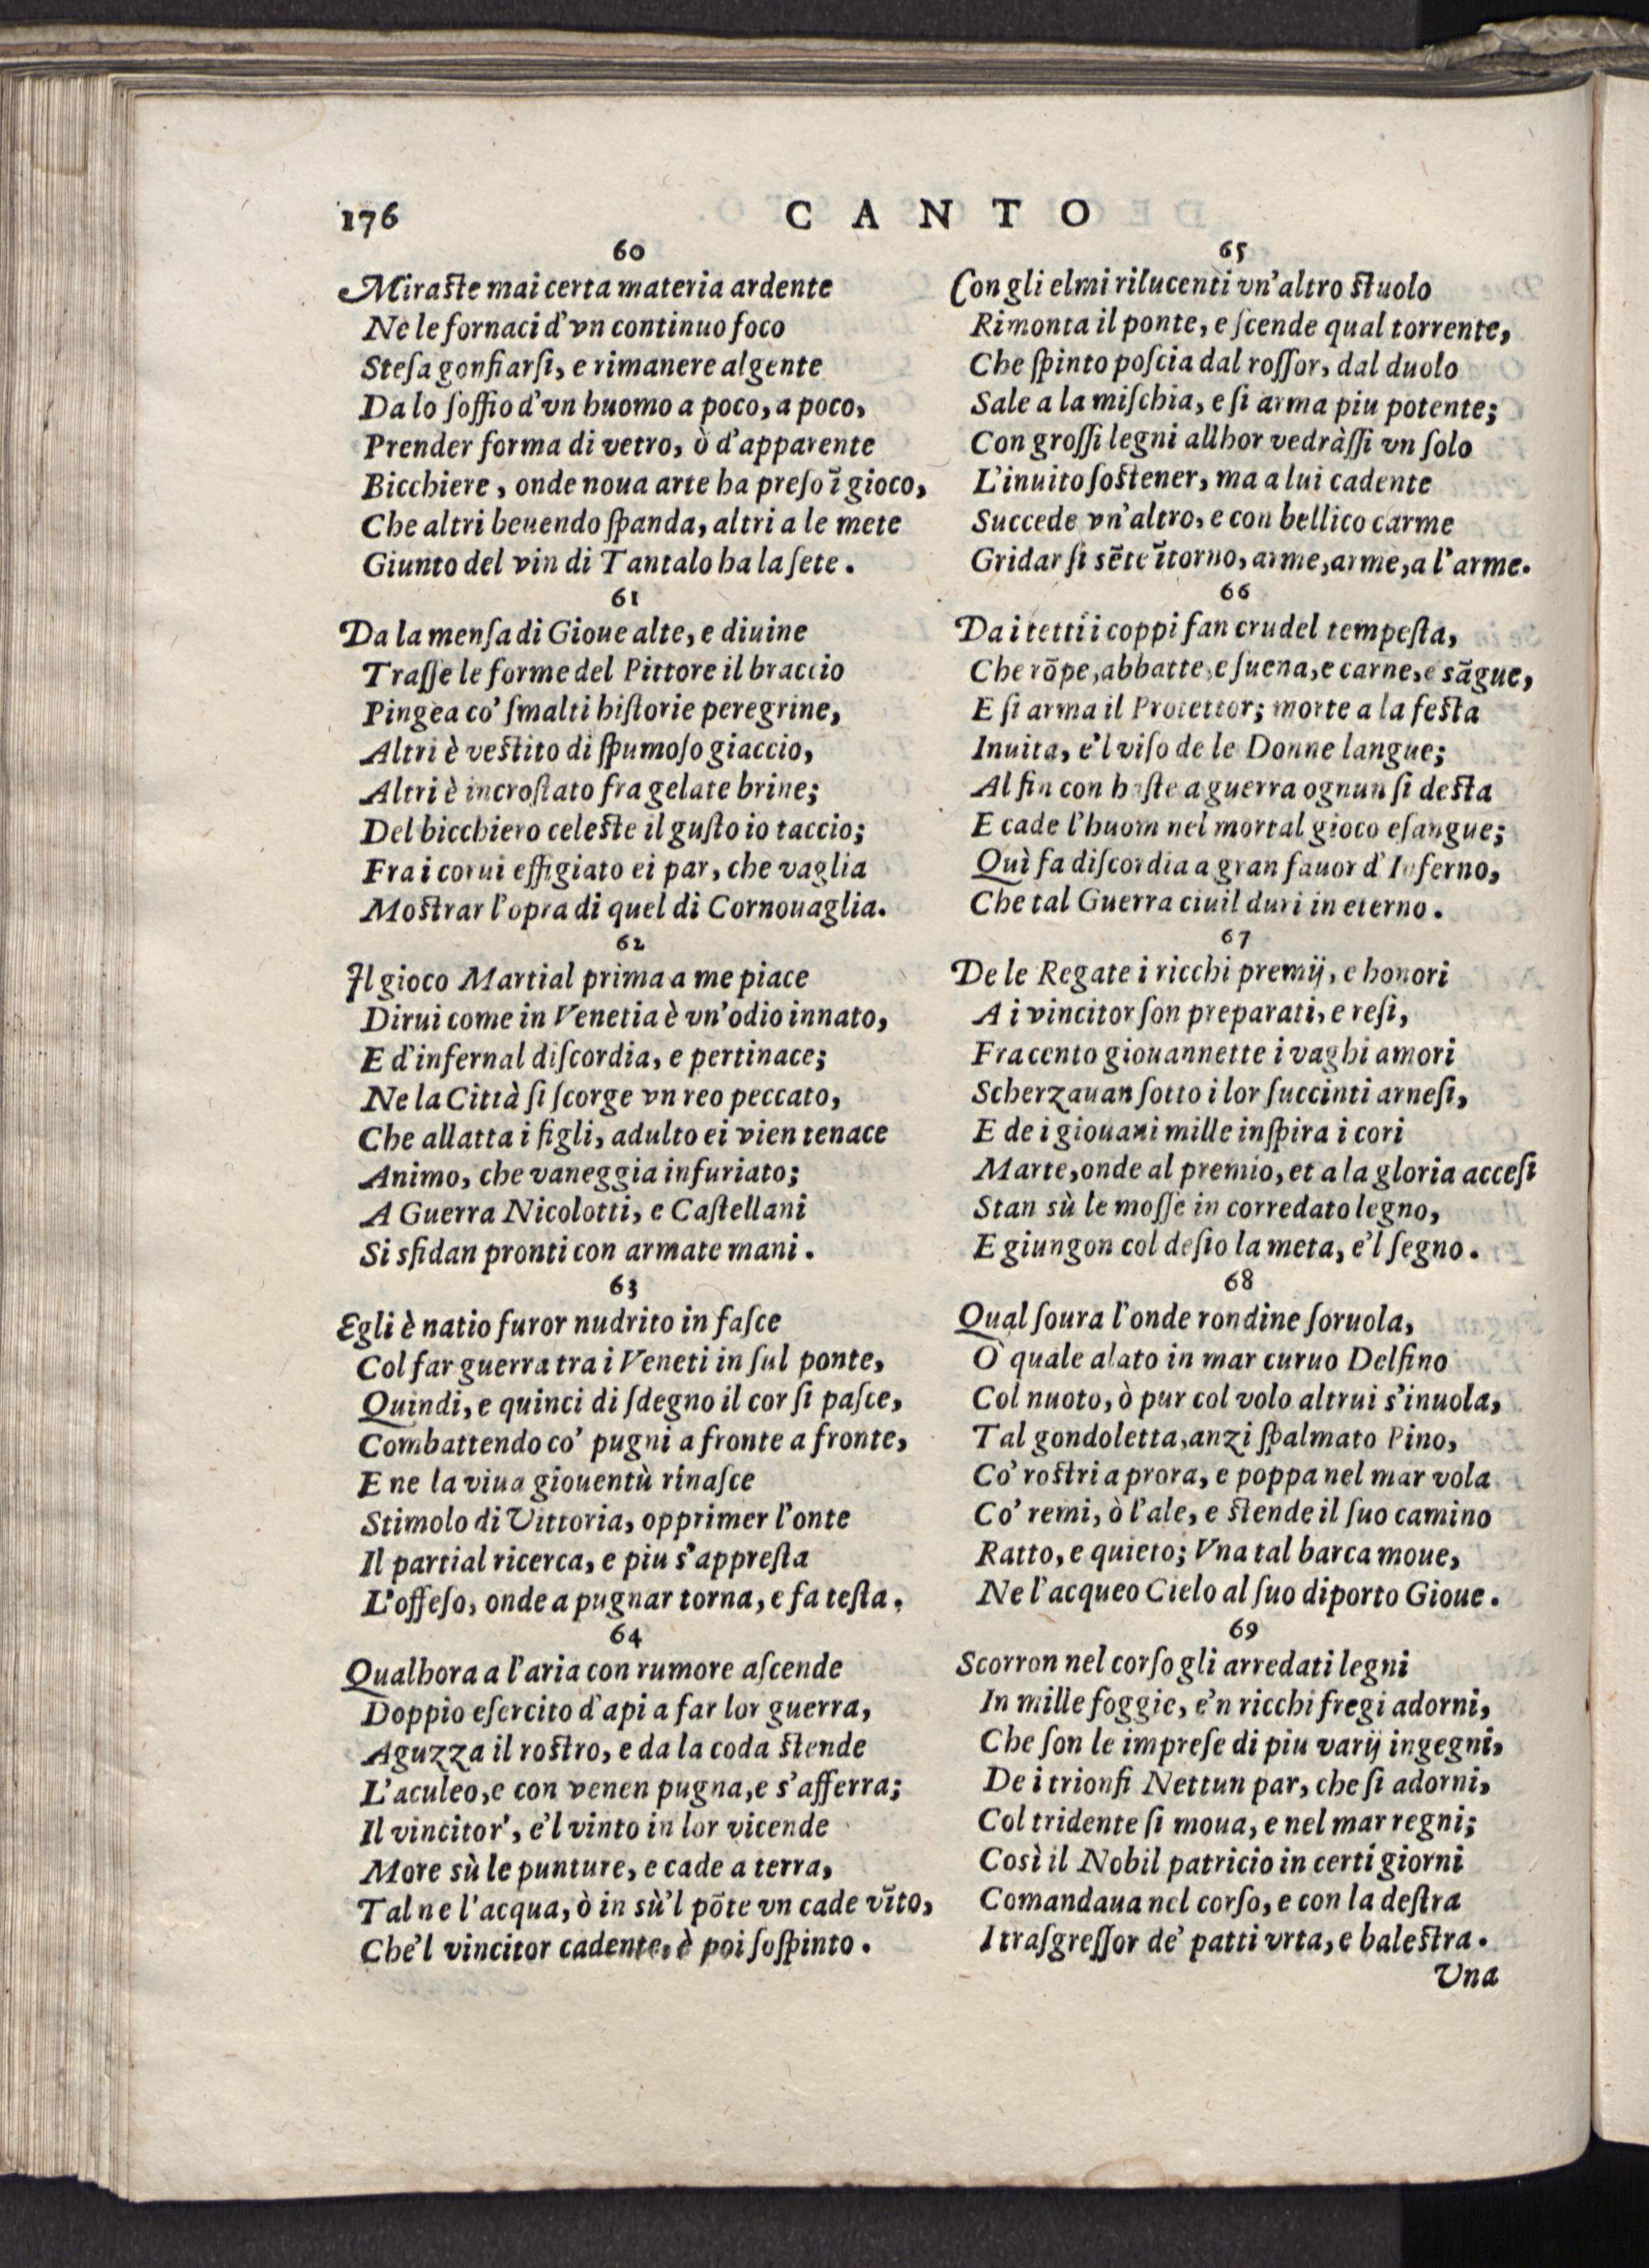 176
CANTO
60
Miraſte mai certa materia ardente
Ne le fornaci d'vn continuo foco
Steſa gonfiarſi, e rimanere algente
Da lo ſoffio d'vn huomo a poco, a poco,
Prender forma di vetro, ò d'apparente
Bicchiere, onde noua arte ha preſo ĩ gioco,
Che altri beuendo ſpanda, altri a le mete
Giunto del vin di Tantalo ha la ſete.
61
Da la menſa di Gioue alte, e diuine
Traſſe le forme del Pittore il braccio
Pingea co' ſmalti hiſtorie peregrine,
Altri è veſtito di ſpumoſo giaccio,
Altri è incroſtato fra gelate brine;
Del bicchiero celeſte il guſto io taccio;
Fra i corui effigiato ei par, che vaglia
Moſtrar l'opra di quel di Cornouaglia.
62
Il gioco Martial prima a me piace
Dirui come in Venetia è vn'odio innato,
E d'infernal diſcordia, e pertinace;
Ne la Città ſi ſcorge vn reo peccato,
Che allatta i figli, adulto ei vien tenace
Animo, che vaneggia infuriato;
A Guerra Nicolotti, e Caſtellani
Si sfidan pronti con armate mani.
63
Egli è natio furor nudrito in faſce
Col far guerra tra i Veneti in ſul ponte,
Quindi, e quinci di ſdegno il cor ſi paſce,
Combattendo co' pugni a fronte a fronte,
E ne la viua giouentù rinaſce
Stimolo di Vittoria, opprimer l'onte
Il partial ricerca, e piu s'appreſta
L'offeſo, onde a pugnar torna, e fa teſta.
64
Qualhora a l'aria con rumore aſcende
Doppio eſercito d'api a far lor guerra,
Aguzza il roſtro, e da la coda ſtende
L'aculeo, e con venen pugna, e s'afferra;
Il vincitor', e'l vinto in lor vicende
More sù le punture, e cade a terra,
Tal ne l'acqua, ò in sù'l põte vn cade vĩto,
Che'l vincitor cadente, è poi ſoſpinto.
65
Con gli elmi rilucenti vn'altro ſtuolo
Rimonta il ponte, e ſcende qual torrente,
Che ſpinto poſcia dal roſſor, dal duolo
Sale a la miſchia, e ſi arma piu potente;
Con groſſi legni allhor vedràſſi vn ſolo
L'inuito ſoſtener, ma a lui cadente
Succede vn'altro, e con bellico carme
Gridar ſi sẽte ĩtorno, arme, arme, a l'arme.
66
Da i tetti i coppi fan crudel tempeſta,
Che rõpe, abbatte, e ſuena, e carne, e sãgue,
E ſi arma il Protettor; morte a la feſta
Inuita, e'l viſo de le Donne langue;
Al fin con haſte a guerra ognun ſi deſta
E cade l'huom nel mortal gioco eſangue;
Quì fa diſcordia a gran fauor d'Inferno,
Che tal Guerra ciuil duri in eterno.
67
De le Regate i ricchi premij, e honori
A i vincitor ſon preparati, e reſi,
Fra cento giouannette i vaghi amori
Scherzauan ſotto i lor ſuccinti arneſi,
E de i giouani mille inſpira i cori
Marte, onde al premio, et a la gloria acceſi
Stan sù le moſſe in corredato legno,
E giungon col deſio la meta, e'l ſegno.
68
Qual ſoura l'onde rondine ſoruola,
O quale alato in mar curuo Delfino
Col nuoto, ò pur col volo altrui s'inuola,
Tal gondoletta, anzi ſpalmato Pino,
Co' roſtri a prora, e poppa nel mar vola
Co' remi, ò l'ale, e ſtende il ſuo camino
Ratto, e quieto; Vna tal barca moue,
Ne l'acqueo Cielo al ſuo diporto Gioue.
69
Scorron nel corſo gli arredati legni
In mille foggie, e'n ricchi fregi adorni,
Che ſon le impreſe di piu varij ingegni,
De i trionfi Nettun par, che ſi adorni,
Col tridente ſi moua, e nel mar regni;
Così il Nobil patricio in certi giorni
Comandaua nel corſo, e con la deſtra
I traſgreſſor de' patti vrta, e baleſtra.
Vna